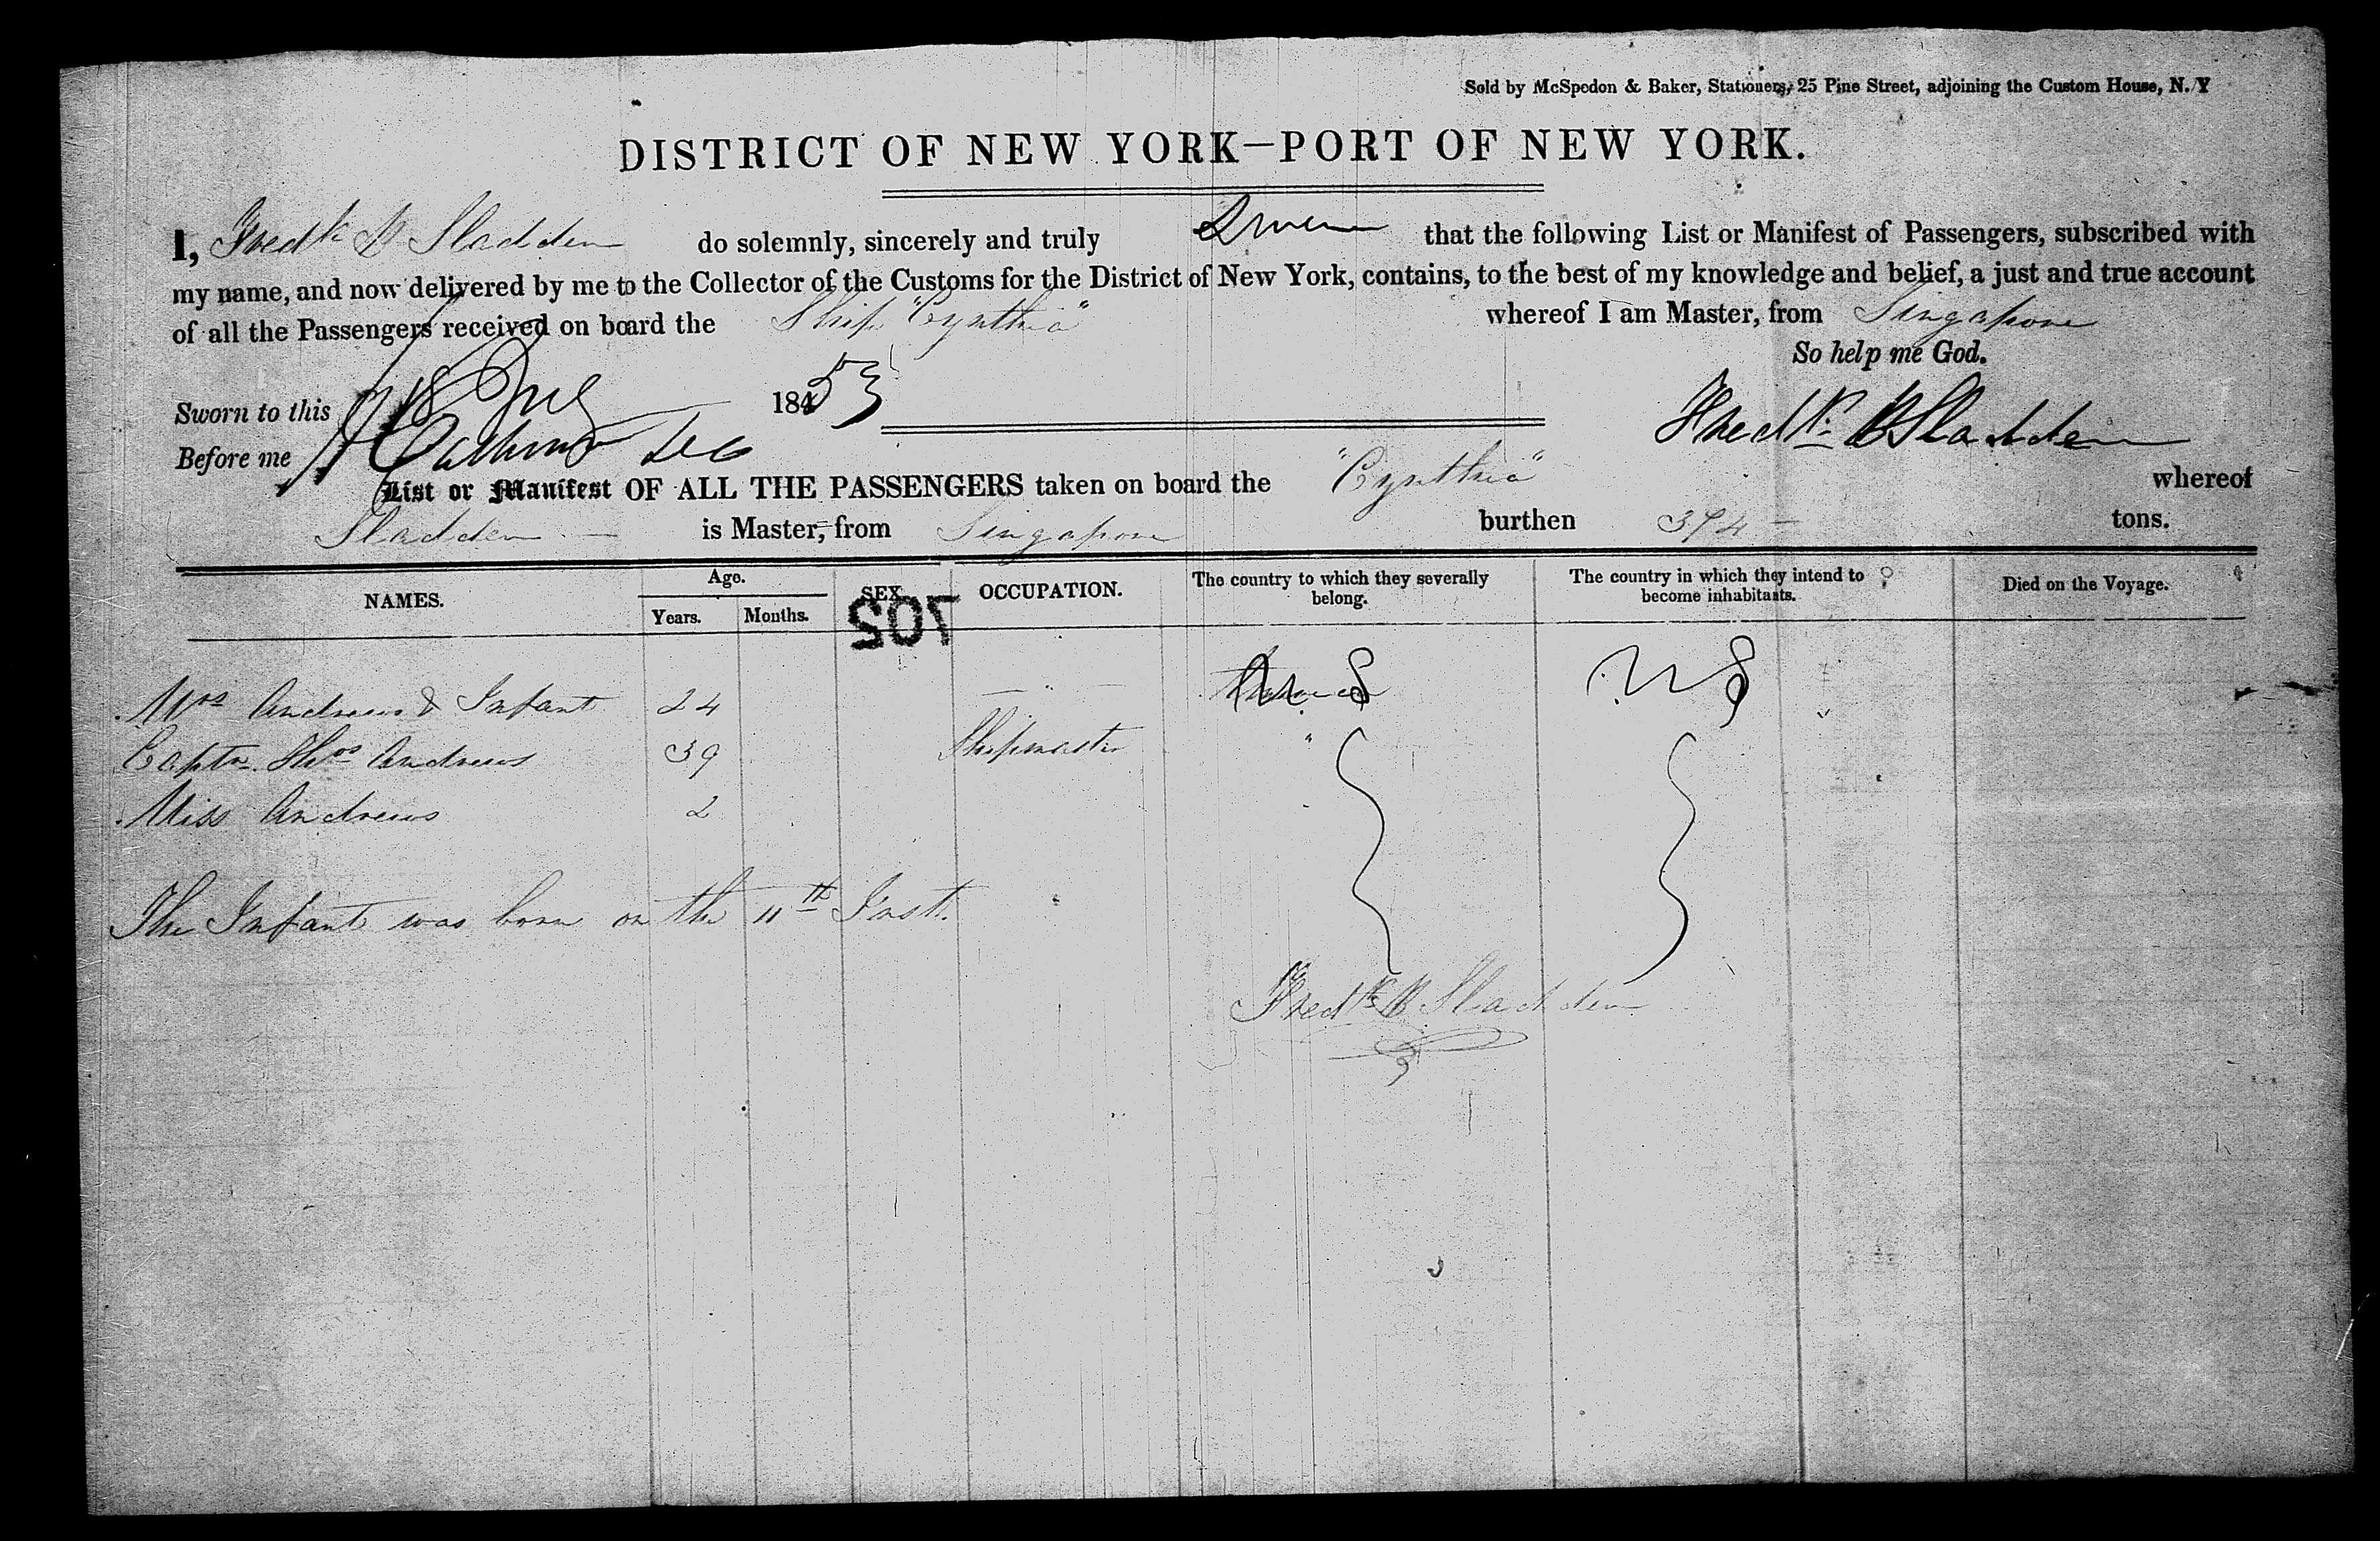 Sold by McSpedon & Baker, Stationers, 25 Pine Street, adjoining the Custom House, N. Y
DISTRICT OF NEW YORK—PORT OF NEW YORK.
I, Fredk B Sladden do solemnly, sincerely and truly Swear that the following List or Manifest of Passengers, subscribed with
my name, and now delivered by me to the Collector of the Customs for the District of New York, contains, to the best of my knowledge and belief, a just and true account
of all the Passengers received on board the Ship "Cynthia" whereof I am Master, from Singapore
So help me God.
Sworn to this 18 1853
Before me
Fredk B Sladden
List or Manifest OF ALL THE PASSENGERS taken on board the "Cynthia" whereof
Sladden is Master, from Singapore burthen 374 tons.
NAMES. Age. SEX OCCUPATION. The country to which they severally belong. The country in which they intend to become inhabitants. Died on the Voyage.
Years. Months.
702
Mrs Andrews & Infant 24 — " — U S U S
Captn. Thos Andrews 39 Shipmaster "
Miss Andrews 2 "
The Infant was born on the 11th Inst.
Fredk B Sladden